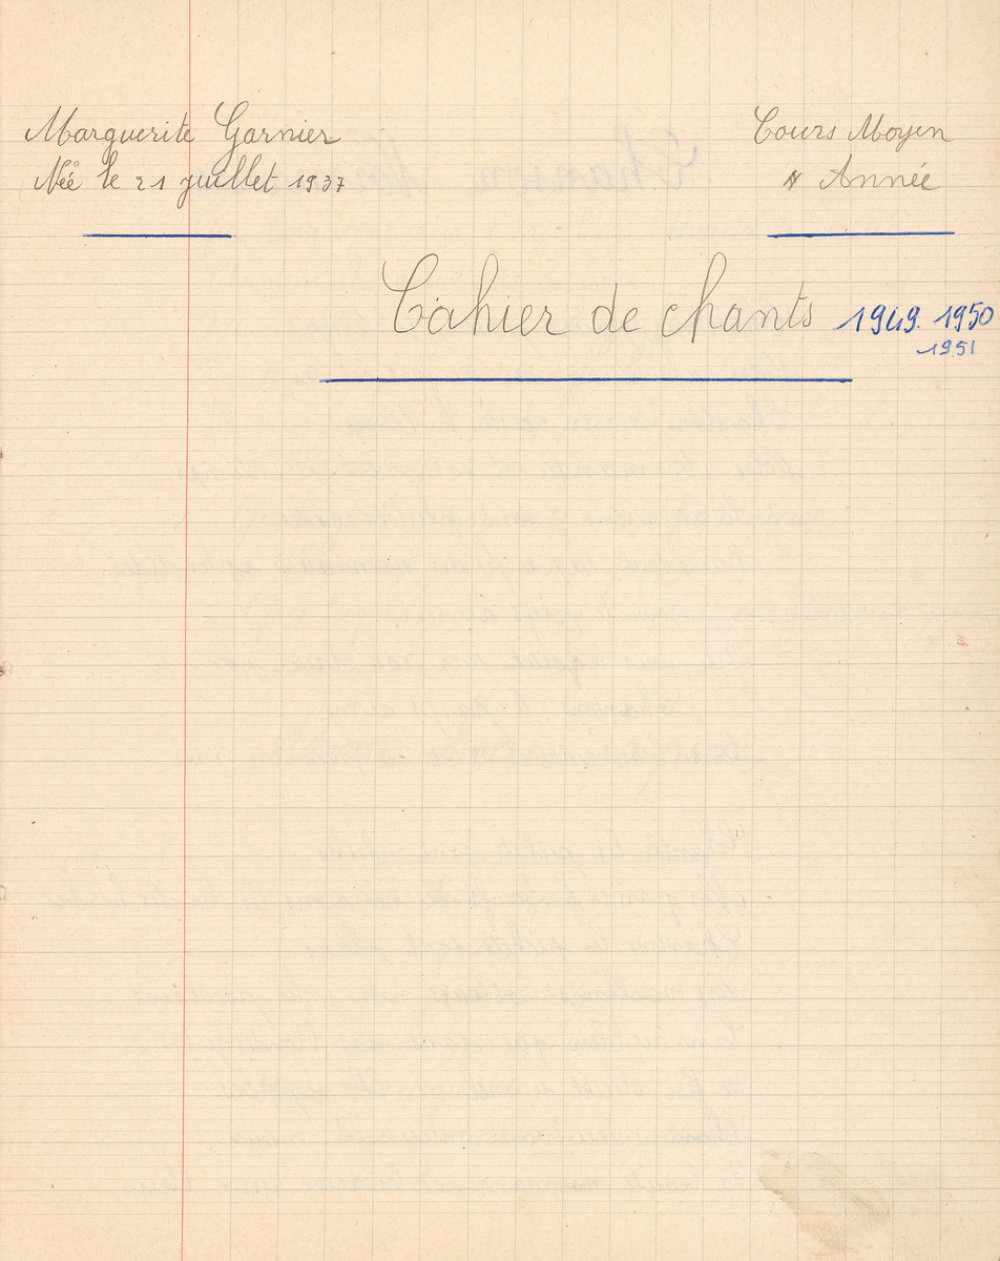 Marguerite Garnier
Née le 21 juillet 1937
Cours Moyen
Année
Cahier de chants 1949. 1950
1951